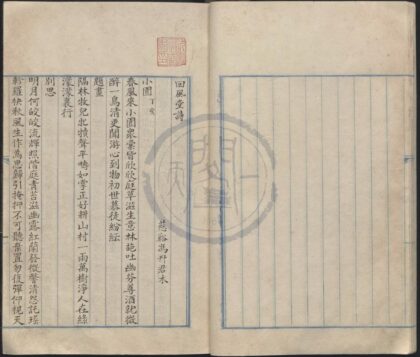 回風堂詩
慈谿馮幵君木
小園 丁亥
春風來小園眾彙皆欣欣庭草滋生意林葩吐幽芬尊酒就微
醉一鳥清更聞游心到物初世慕徒紛紜
題畫
隔林牧兒叱犢聲平疇如掌正好耕山村一雨萬樹淨人在綠
濛濛裏行
別思
明月何皎皎流輝照階庭青苔滋幽露紅蘭發微馨清怨託瑤
軫羅袂秋風生作為思歸引掩抑不可聽棄置勿復彈仰視天